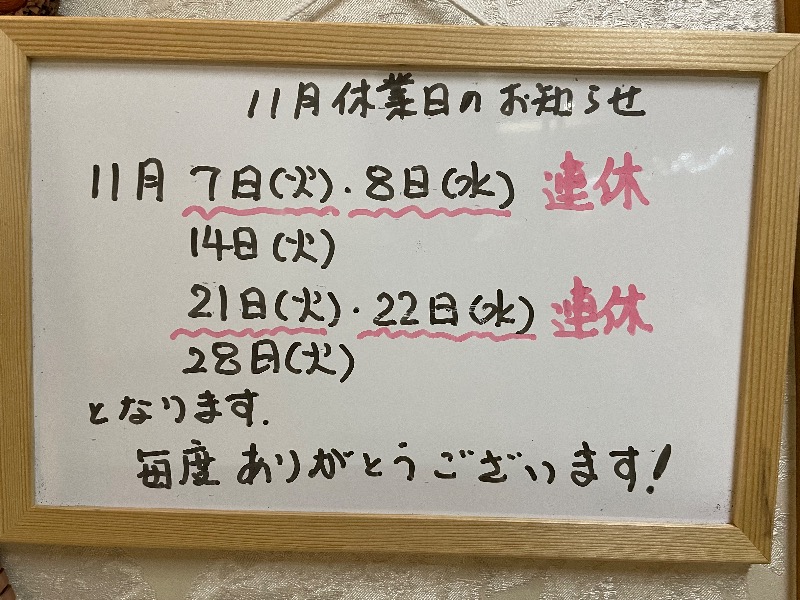 11月休業日のお知らせ
11月 7日(火)・8日(水) 連休
14日(火)
21日(火)・22日(水) 連休
28日(火)
となります.
毎度ありがとうございます!